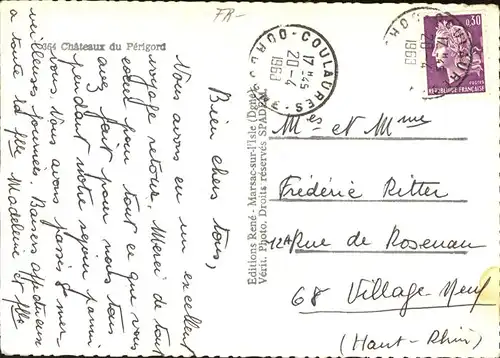 FR-
364 Châteaux du Périgord
Bien chers tous,
Vous avons eu un excellent
voyage retour. Merci de tout
cœur pour tout ce que vous
avez fait pour nous tous
pendant notre séjour parmi
vous. Nous avons passé 8 mer-
veilleuses journées. Baisers affectueux
à toute la flle Madeleine et flle
Editions René - Marsac-sur-l'Isle (Dgne)
Vérit. Photo. Droits réservés SPADEM
COULAURES
DORDOGNE
17 H 45
20-4
1968
0,30
REPUBLIQUE FRANÇAISE
Mes et Mme
Frédéric Ritter
12A Rue de Rosenau
68 Village-Neuf
(Haut-Rhin)